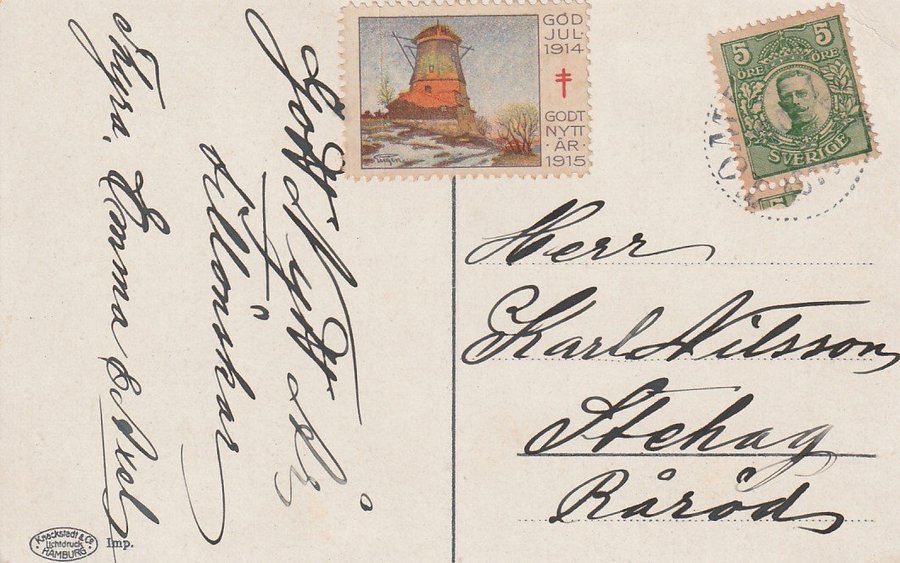 Gott Nytt År
tillönskar
Thyra, Emma & Axel
GOD
JUL
1914
GODT
NYTT
ÅR
1915
5 5
ÖRE ÖRE
SVERIGE
5
Herr
Karl Nilsson
Stehag
Råröd
Knackstedt & Co
Lichtdruck
HAMBURG
Imp.